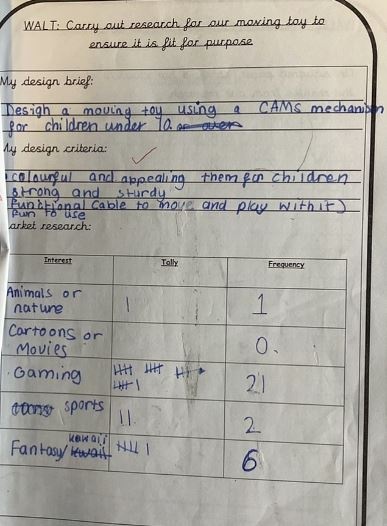 WALT: Carry out research for our moving toy to
ensure it is fit for purpose
My design brief:
Design a moving toy using a CAMs mechanism
for children under 10. or over
My design criteria:
colourful and appealing them for children
strong and sturdy
Functional (able to move and play with it)
Fun to use
arket research:
Interest Tally Frequency
Animals or
nature | 1
Cartoons or
Movies 0.
Gaming 21
sports || 2
kawaii
Fantasy/ kwaii 6